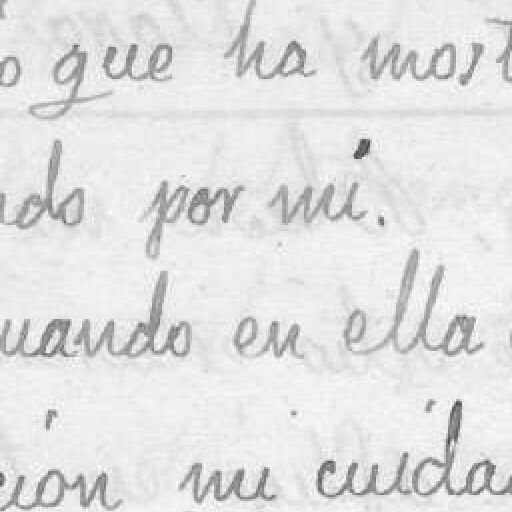 o que ha most
ndo por mí.
uando en ella
ción mi cuida